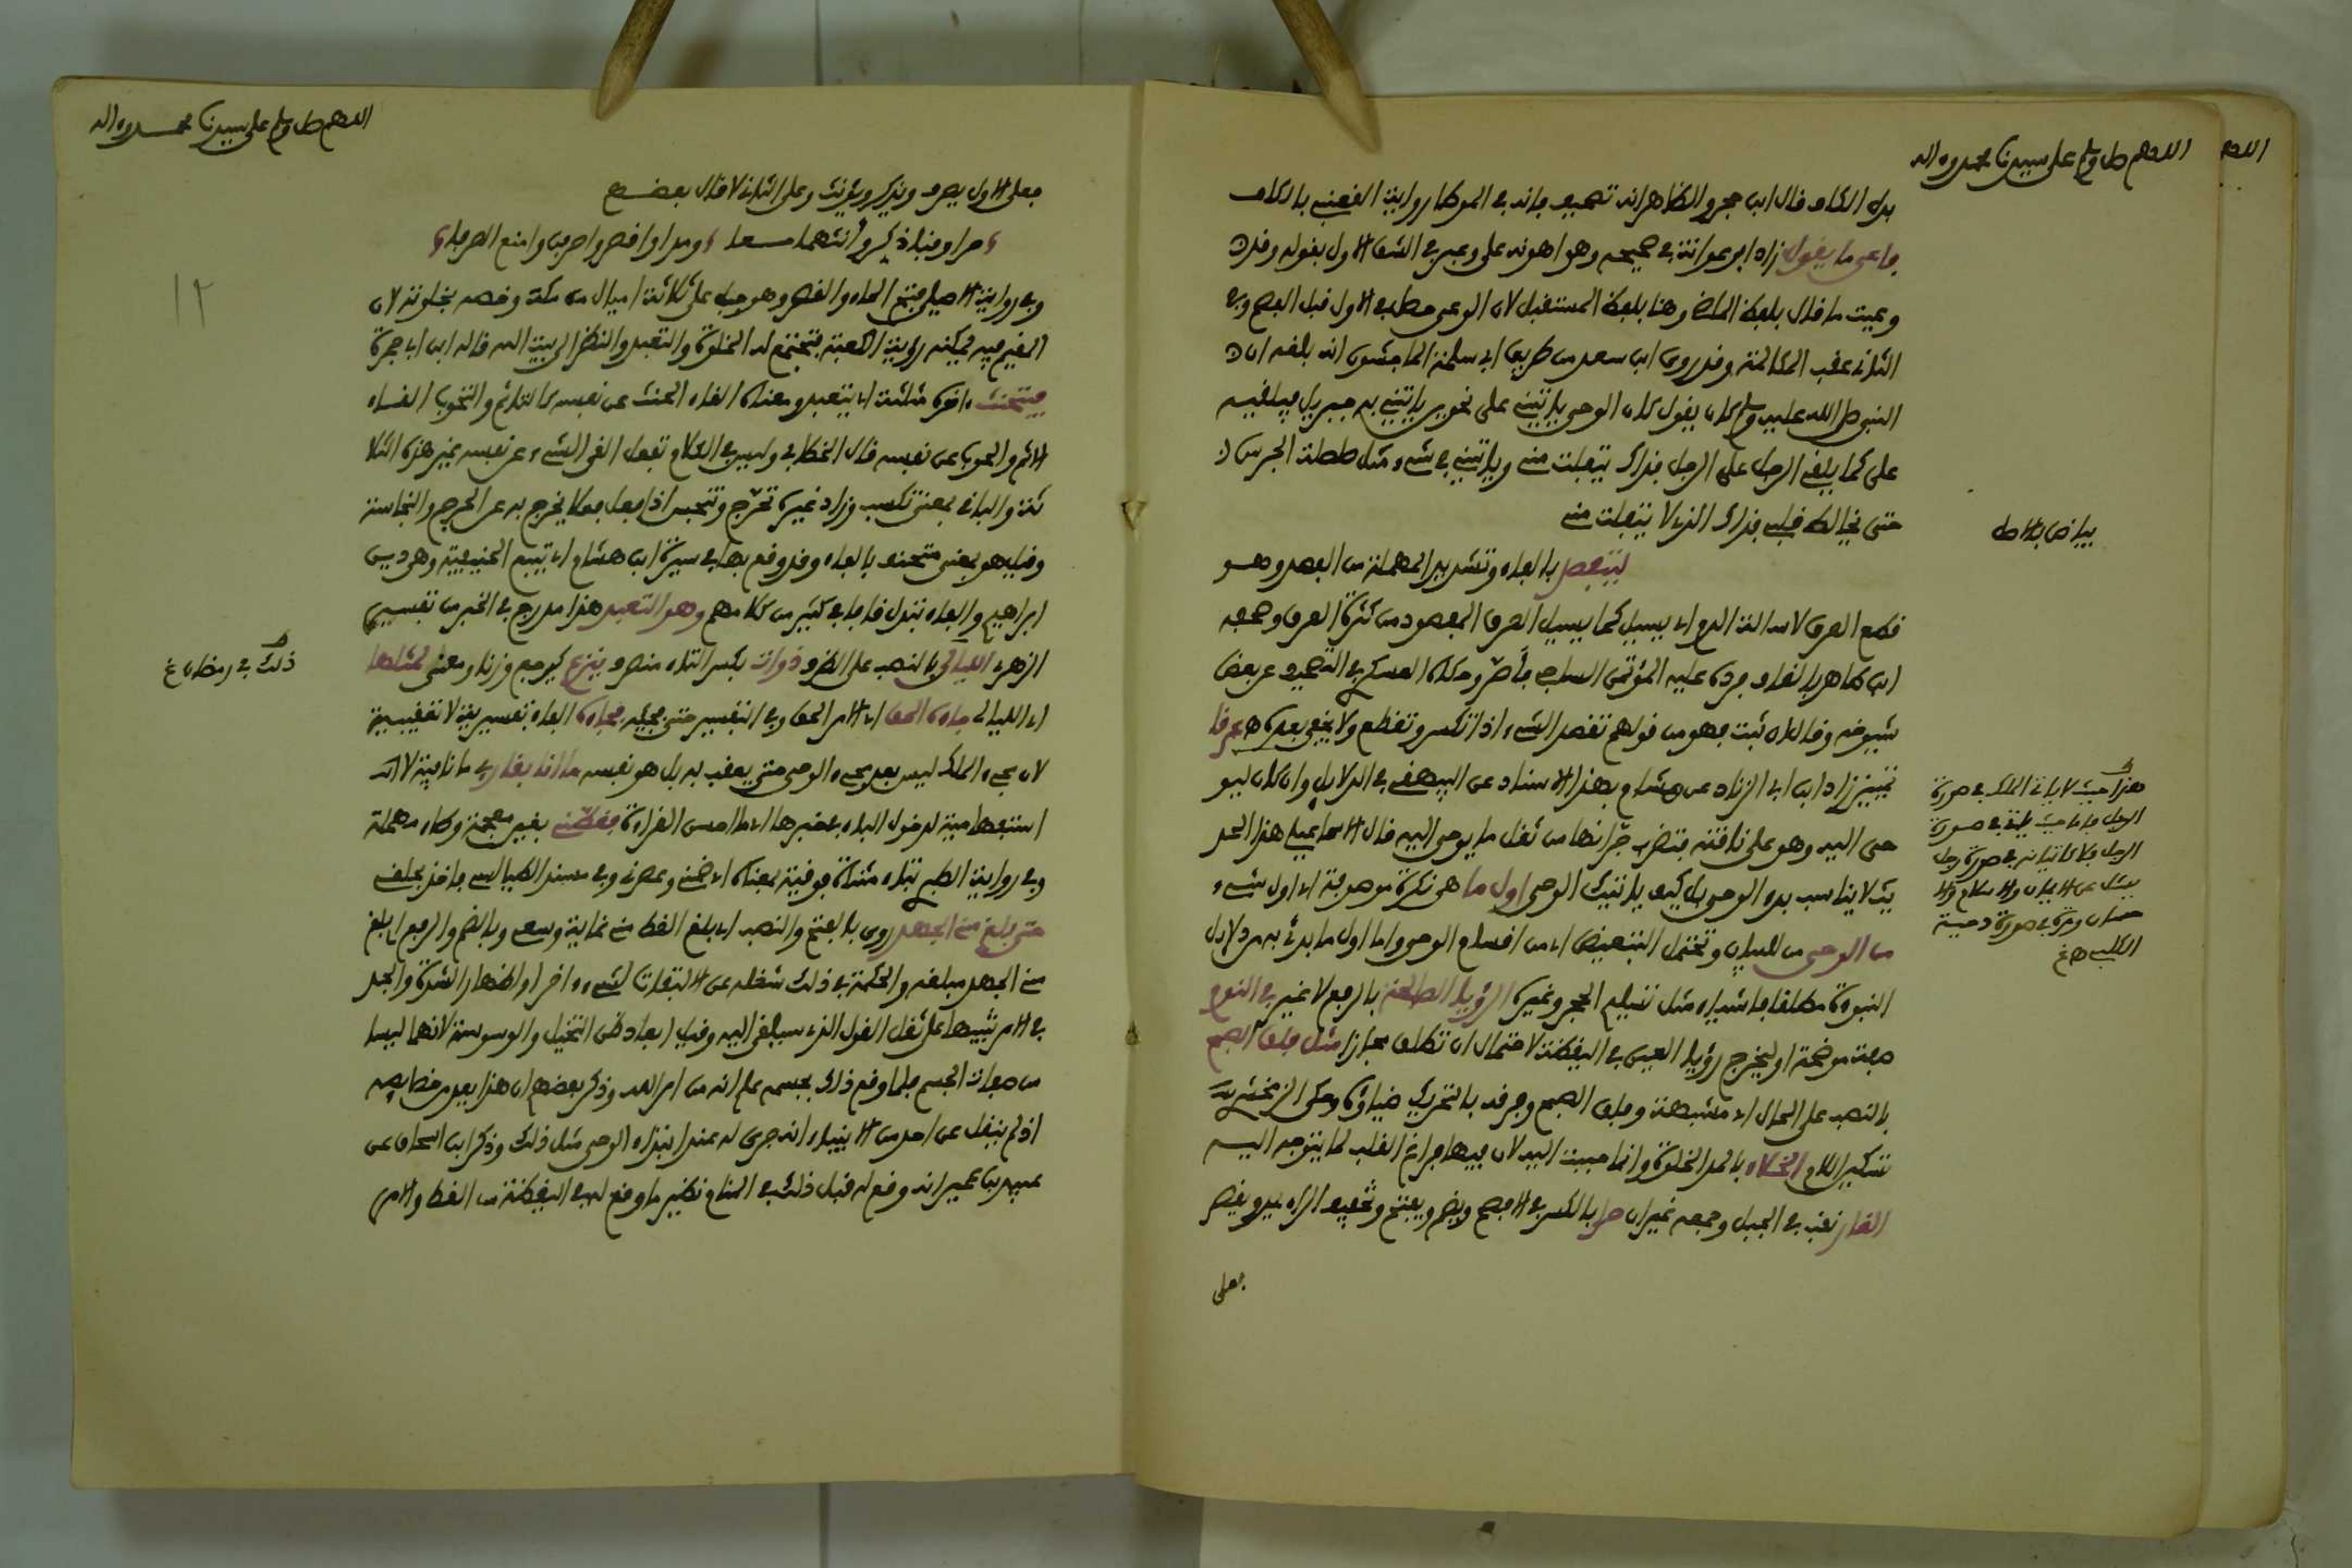 اللهم صل وسلم على سيدنا محمد وءاله
بدل الكاف قال ابن حجر والظاهر انه تصحيف فانه في الموطا رواية القعنبي بالكاف
فاعي ما يقول زاد ابو عوانة في صحيحه وهو اهونه علي وعبر في الشق الاول بقوله وقد
وعيت ما قال بلفظ الماضي وهنا بلفظ المستقبل لان الوعي حصل في الاول قبل الفصم وفي
الثاني عقب المكالمة وقد روى ابن سعد من طريق ابي سلمة الماجشون انه بلغه ان
النبي صلى الله عليه وسلم كان يقول كان الوحي ياتيني على نحوين ياتيني به جبريل فيلقيه
علي كما يلقي الرجل على الرجل فذاك يتفلت مني وياتيني في شيء مثل صلصلة الجرس
حتى يخالط قلبي فذاك الذي لا يتفلت مني
بياض بالاصل
ليتفصد بالفاء وتشديد المهملة من الفصد وهو
قطع العرق لاسالة الدم اي يسيل كما يسيل العرق المفصود من كثرة العرق وصحفه
ابن طاهر بالقاف فرده عليه المؤتمن الساجي فاصر وحكاه العسكري في التصحيف عن بعض
شيوخه وقال ان ثبت فهو من قولهم تقصد الشيء اذا تكسر وتقطع ولا يخفى بعده هـ عرقا
تمييز زاد ابن ابي الزناد عن هشام بهذا الاسناد عن البيهقي في الدلايل وان كان ليو
حى اليه وهو على ناقته فتضرب جرانها من ثقل ما يوحى اليه قال الاسماعيلي هذا الحد
يث لا يناسب بدء الوحي بل كيف ياتيك الوحي اول ما هي نكرة موصوفة اي اول شيء
من الوحي من للبيان وتحتمل التبعيض اي من اقسام الوحي واما اول ما بدئ به من دلايل
النبوءة مطلقا فاشياء مثل تسليم الحجر وغيره الرؤيا الصالحة بالرفع لا غير في النوم
صفة موضحة او ليخرج رؤيا العين في اليقظة لاحتمال ان تطلق مجازا مثل فلق الصبح
بالنصب على الحال اي مشبهة وفلق الصبح وفرقه بالتحريك ضياؤه وحكى الزمخشري
تسكين اللام الخلاء بالمد الخلوة وانما حببت اليه لان فيها فراغ القلب لما يتوجه اليه
الغار نقب في الجبل وجمعه غيران حرا بالكسر في الافصح ويضم ويفتح وتخفيف الراء يمد ويقصر
فعلى
هذا حيث لا ياتي الملك في صورة
الرجل فاما حيث ياتي في صورة
الرجل فلا كاتيانه في صورة رجل
يسئل عن الايمان والاسلام والا
حسان ومرة في صورة دحية
الكلبي هـ غ
اللهم صل وسلم على سيدنا محمد وءاله
١٢
فعلى الاول يصرف ويذكر ويؤنث وعلى الثاني لا قال بعضهم
حرا وقبا ذكر وانثهما معا ومد او اقصر واصرفن وامنع الصرفا
وفي رواية الاصيلي بفتح الحاء والقصر وهو جبل على ثلاثة اميال من مكة وخصه بخلوته لان
المقيم فيه يمكنه رؤية الكعبة فتجتمع له الخلوة والتعبد والنظر الى بيت الله قاله ابن ابي جمرة
فيتحنث اخره مثلثة اي يتعبد ومعناه القاء الحنث عن نفسه كالتاثم والتحوب القاء
الاثم والحوب عن نفسه قال الخطابي وليس في الكلام تفعل القى الشيء عن نفسه غير هذه الثلا
ثة والباقي بمعنى تكسب وزاد غيره تحرج وتنجس اذا فعل فعلا يخرج به عن الحرج والنجاسة
وقيل هو بمعنى يتحنف بالفاء وقد وقع بها في سيرة ابن هشام اي يتبع الحنيفية وهو دين
ابراهيم والفاء تبدل ثاء في كثير من كلامهم وهو التعبد هذا مدرج في الخبر من تفسير
الزهري الليالي بالنصب على الظرف ذوات بكسر التاء منصوب ينزع كيرجع وزنا ومعنى لمثلها
ذلك في رمضان غ
اي الليالي جاءه الحق اي الامر الحق وفي التفسير حتى فجئه فجاءه الفاء تفسيرية لا تعقيبية
لان مجيء الملك ليس بعد مجيء الوحي حتى يعقب به بل هو نفسه ما انا بقارئ ما نافية لا
استفهامية لدخول الباء في خبرها اي ما احسن القراءة فغطني بغين معجمة وطاء مهملة
وفي رواية الطبري بتاء مثناة فوقية بمعناه اي ضمني وعصرني وفي مسند الطيالسي فاخذ بحلقي
حتى بلغ مني الجهد روي بالفتح والنصب اي بلغ الغط مني غاية وسعي وبالضم والرفع اي بلغ
مني الجهد مبلغه والحكمة في ذلك شغله عن الالتفات لشيء اخر او اظهار الشدة والجد
في الامر تنبيها على ثقل القول الذي سيلقى اليه وقيل ابعاد ظن التخيل والوسوسة لانهما ليسا
من صفات الجسم فلما وقع ذلك بجسمه علم انه من امر الله وذكر بعضهم ان هذا يعد من خصايصه
اذ لم ينقل عن احد من الانبياء انه جرى له عند ابتداء الوحي مثل ذلك وذكر ابن اسحاق عن
عبيد بن عمير انه وقع له قبل ذلك في المنام نظير ما وقع له في اليقظة من الغط والامر